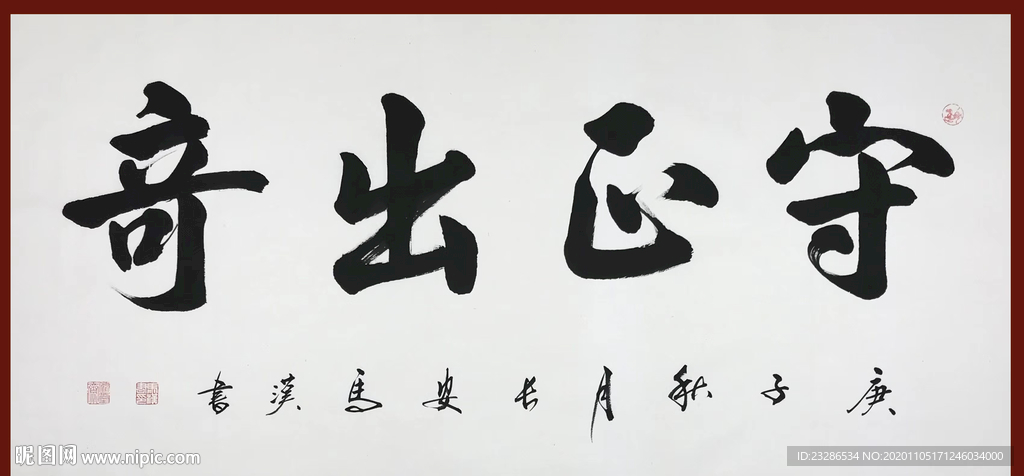 守正出奇
庚子秋月长安马汉书
昵图网 www.nipic.com
ID:23286534 NO:20201105171246034000